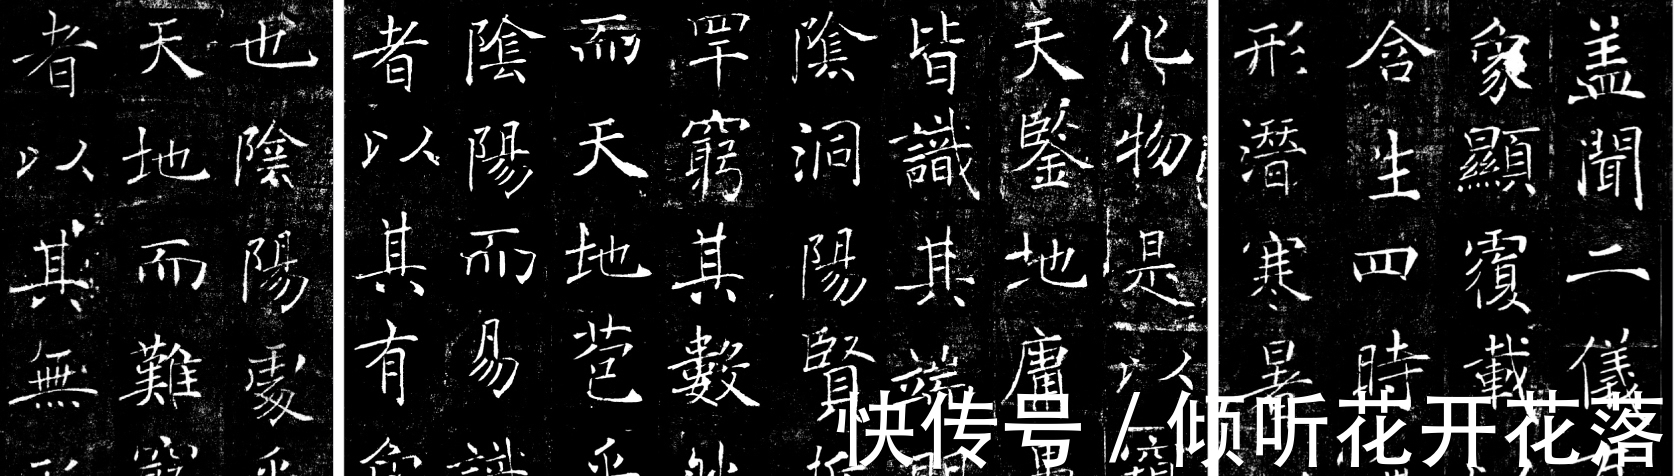 盖聞二儀
象顯覆載
含生四時
形潛寒暑
化物是以
天鑒地庸
皆識其端
陰洞陽賢
罕窮其數
而天地苞
陰陽而易識
者以其有象
也陰陽處乎
天地而難窮
者以其無形
快传号/倾听花开花落